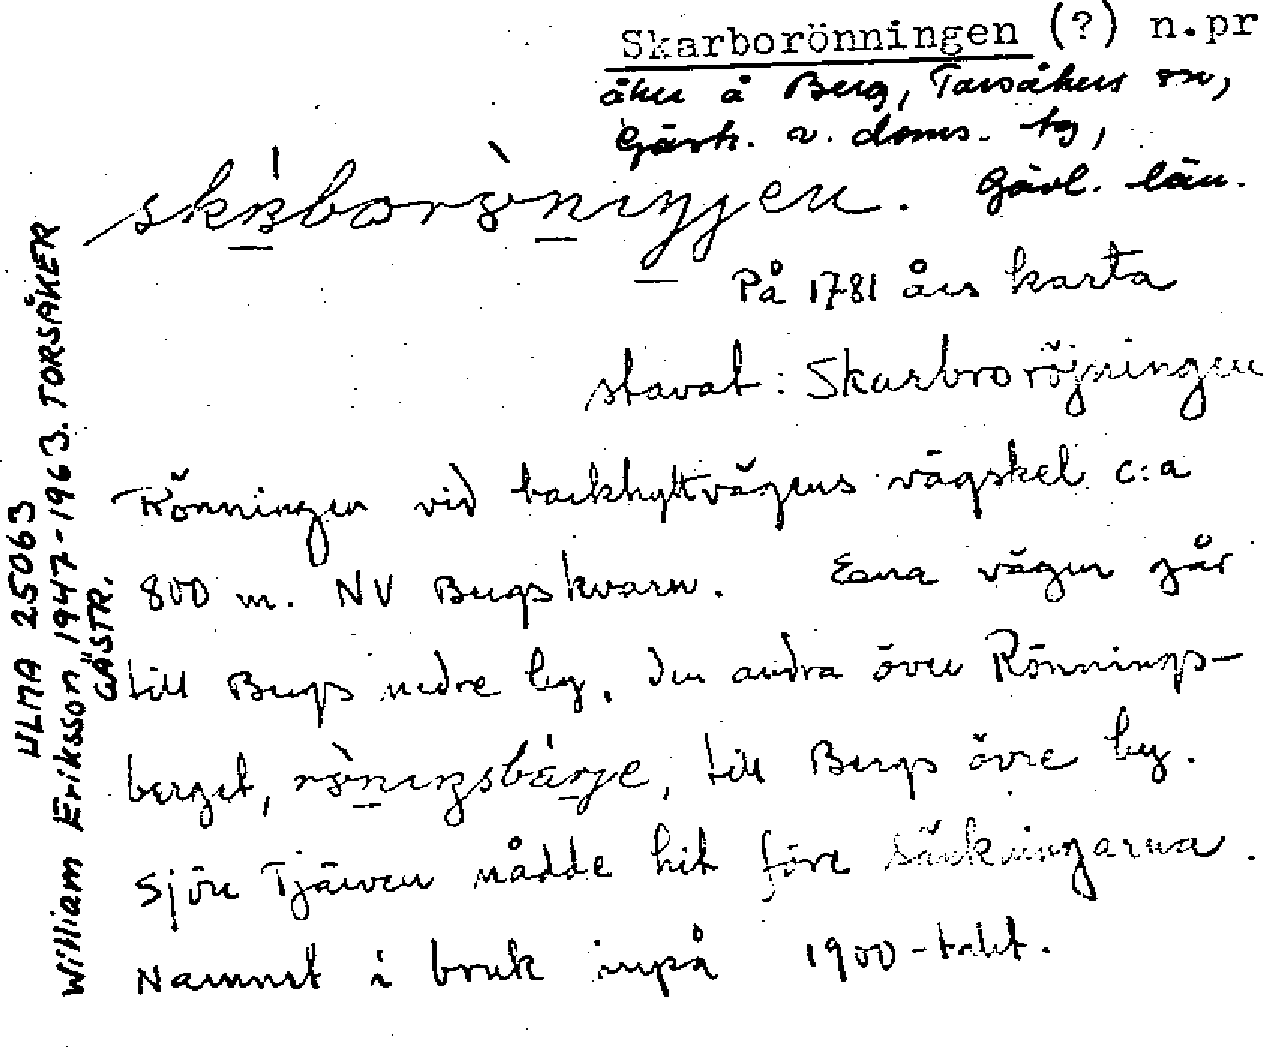 Skarborönningen (?) n.pr
åker å Berg, Torsåkers sn,
Gästr. v. doms. tg,
Gävl. län.
På 1781 års karta
stavat: Skarbroröjningen
Rönningen vid backhyttvägens vägskel c:a
800 m. NV Bergs kvarn. Ena vägen går
till Bergs nedre by, den andra över Rönnings-
berget, till Bergs övre by.
Sjön Tjärven nådde hit före sänkningarna.
Namnet i bruk inpå 1900-talet.
ULMA 25063
William Eriksson 1947-1963. TORSÅKER
GÄSTR.